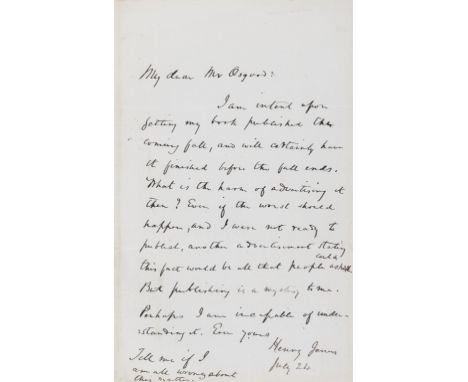 My dear Mr Osgood:
I am intent upon
getting my book published this
coming fall, and will certainly have
it finished before the fall ends.
What is the harm of advertising it
then? Even if the worst should
happen, and I were not ready to
publish, another advertisement stating
this fact would be all that people could ask
But publishing is a mystery to me.
Perhaps I am incapable of under-
standing it. Ever yours
Henry James
July 24
Tell me if I
am all wrong about
this matter